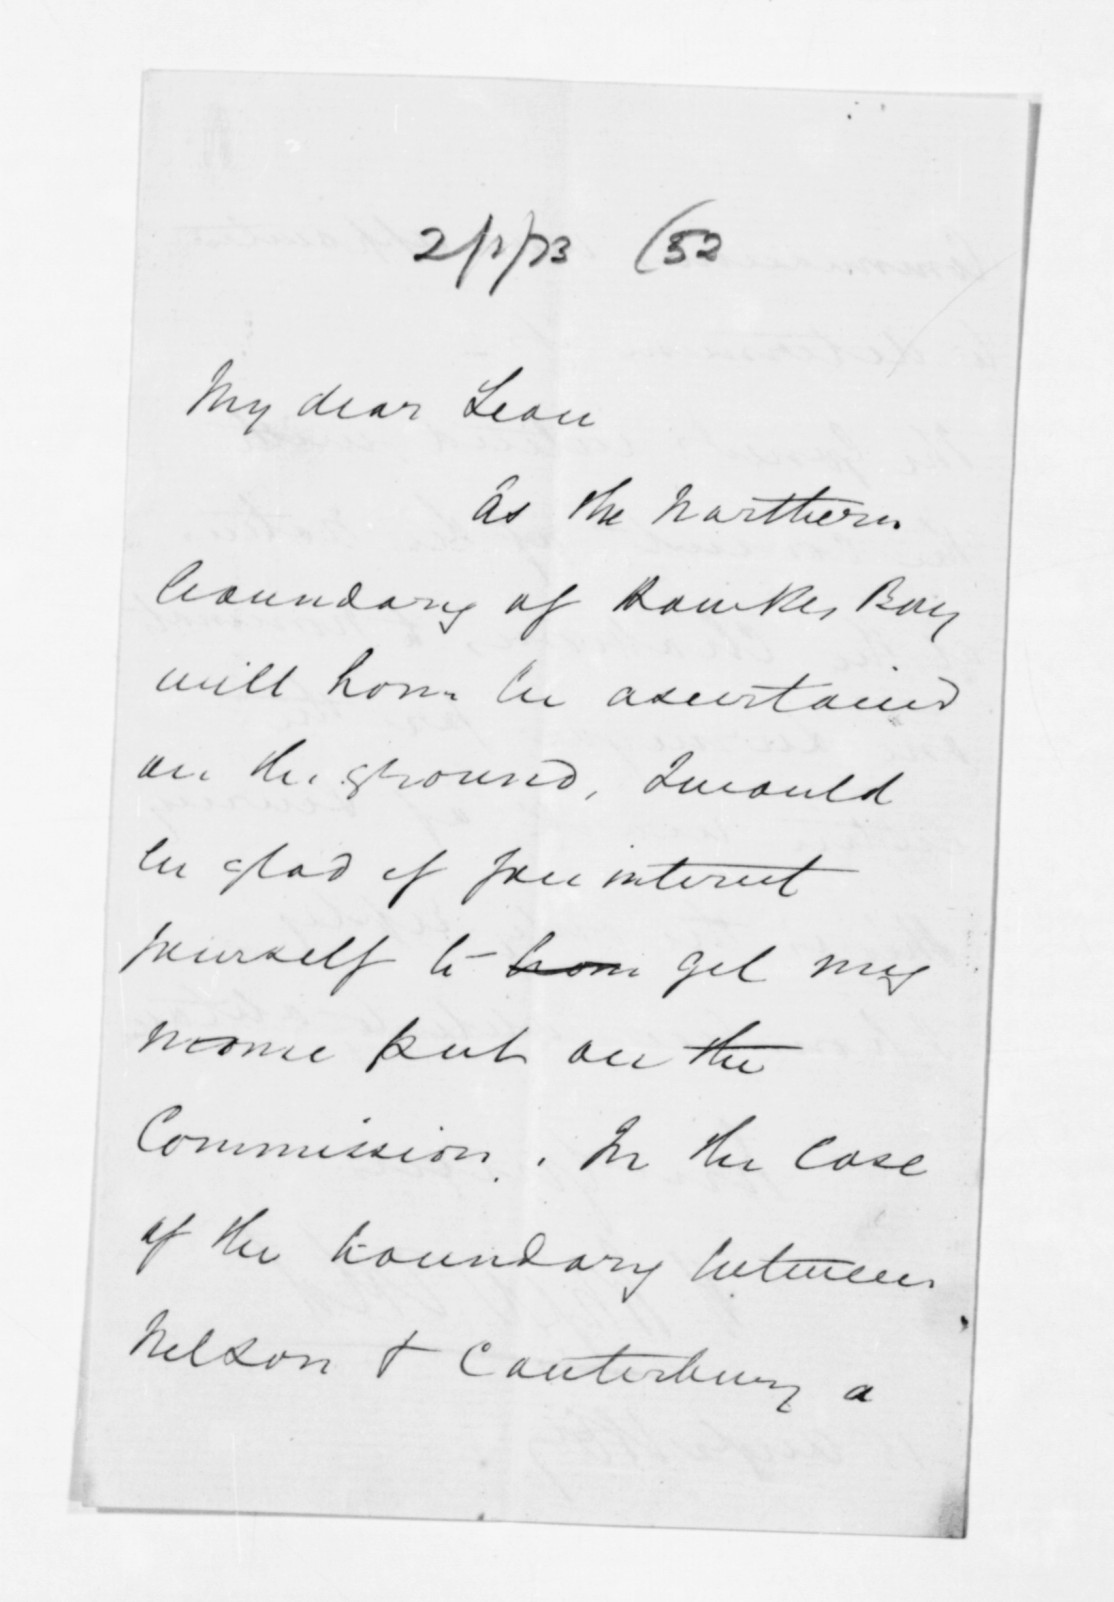 2/1/73 (52
My dear Lean
As the Northern
boundary of Hawkes Bay
will have be ascertained
on the ground, I would
be glad if you interest
yourself to have get my
name put on the
Commission. In the case
of the boundary between
Nelson & Canterbury a